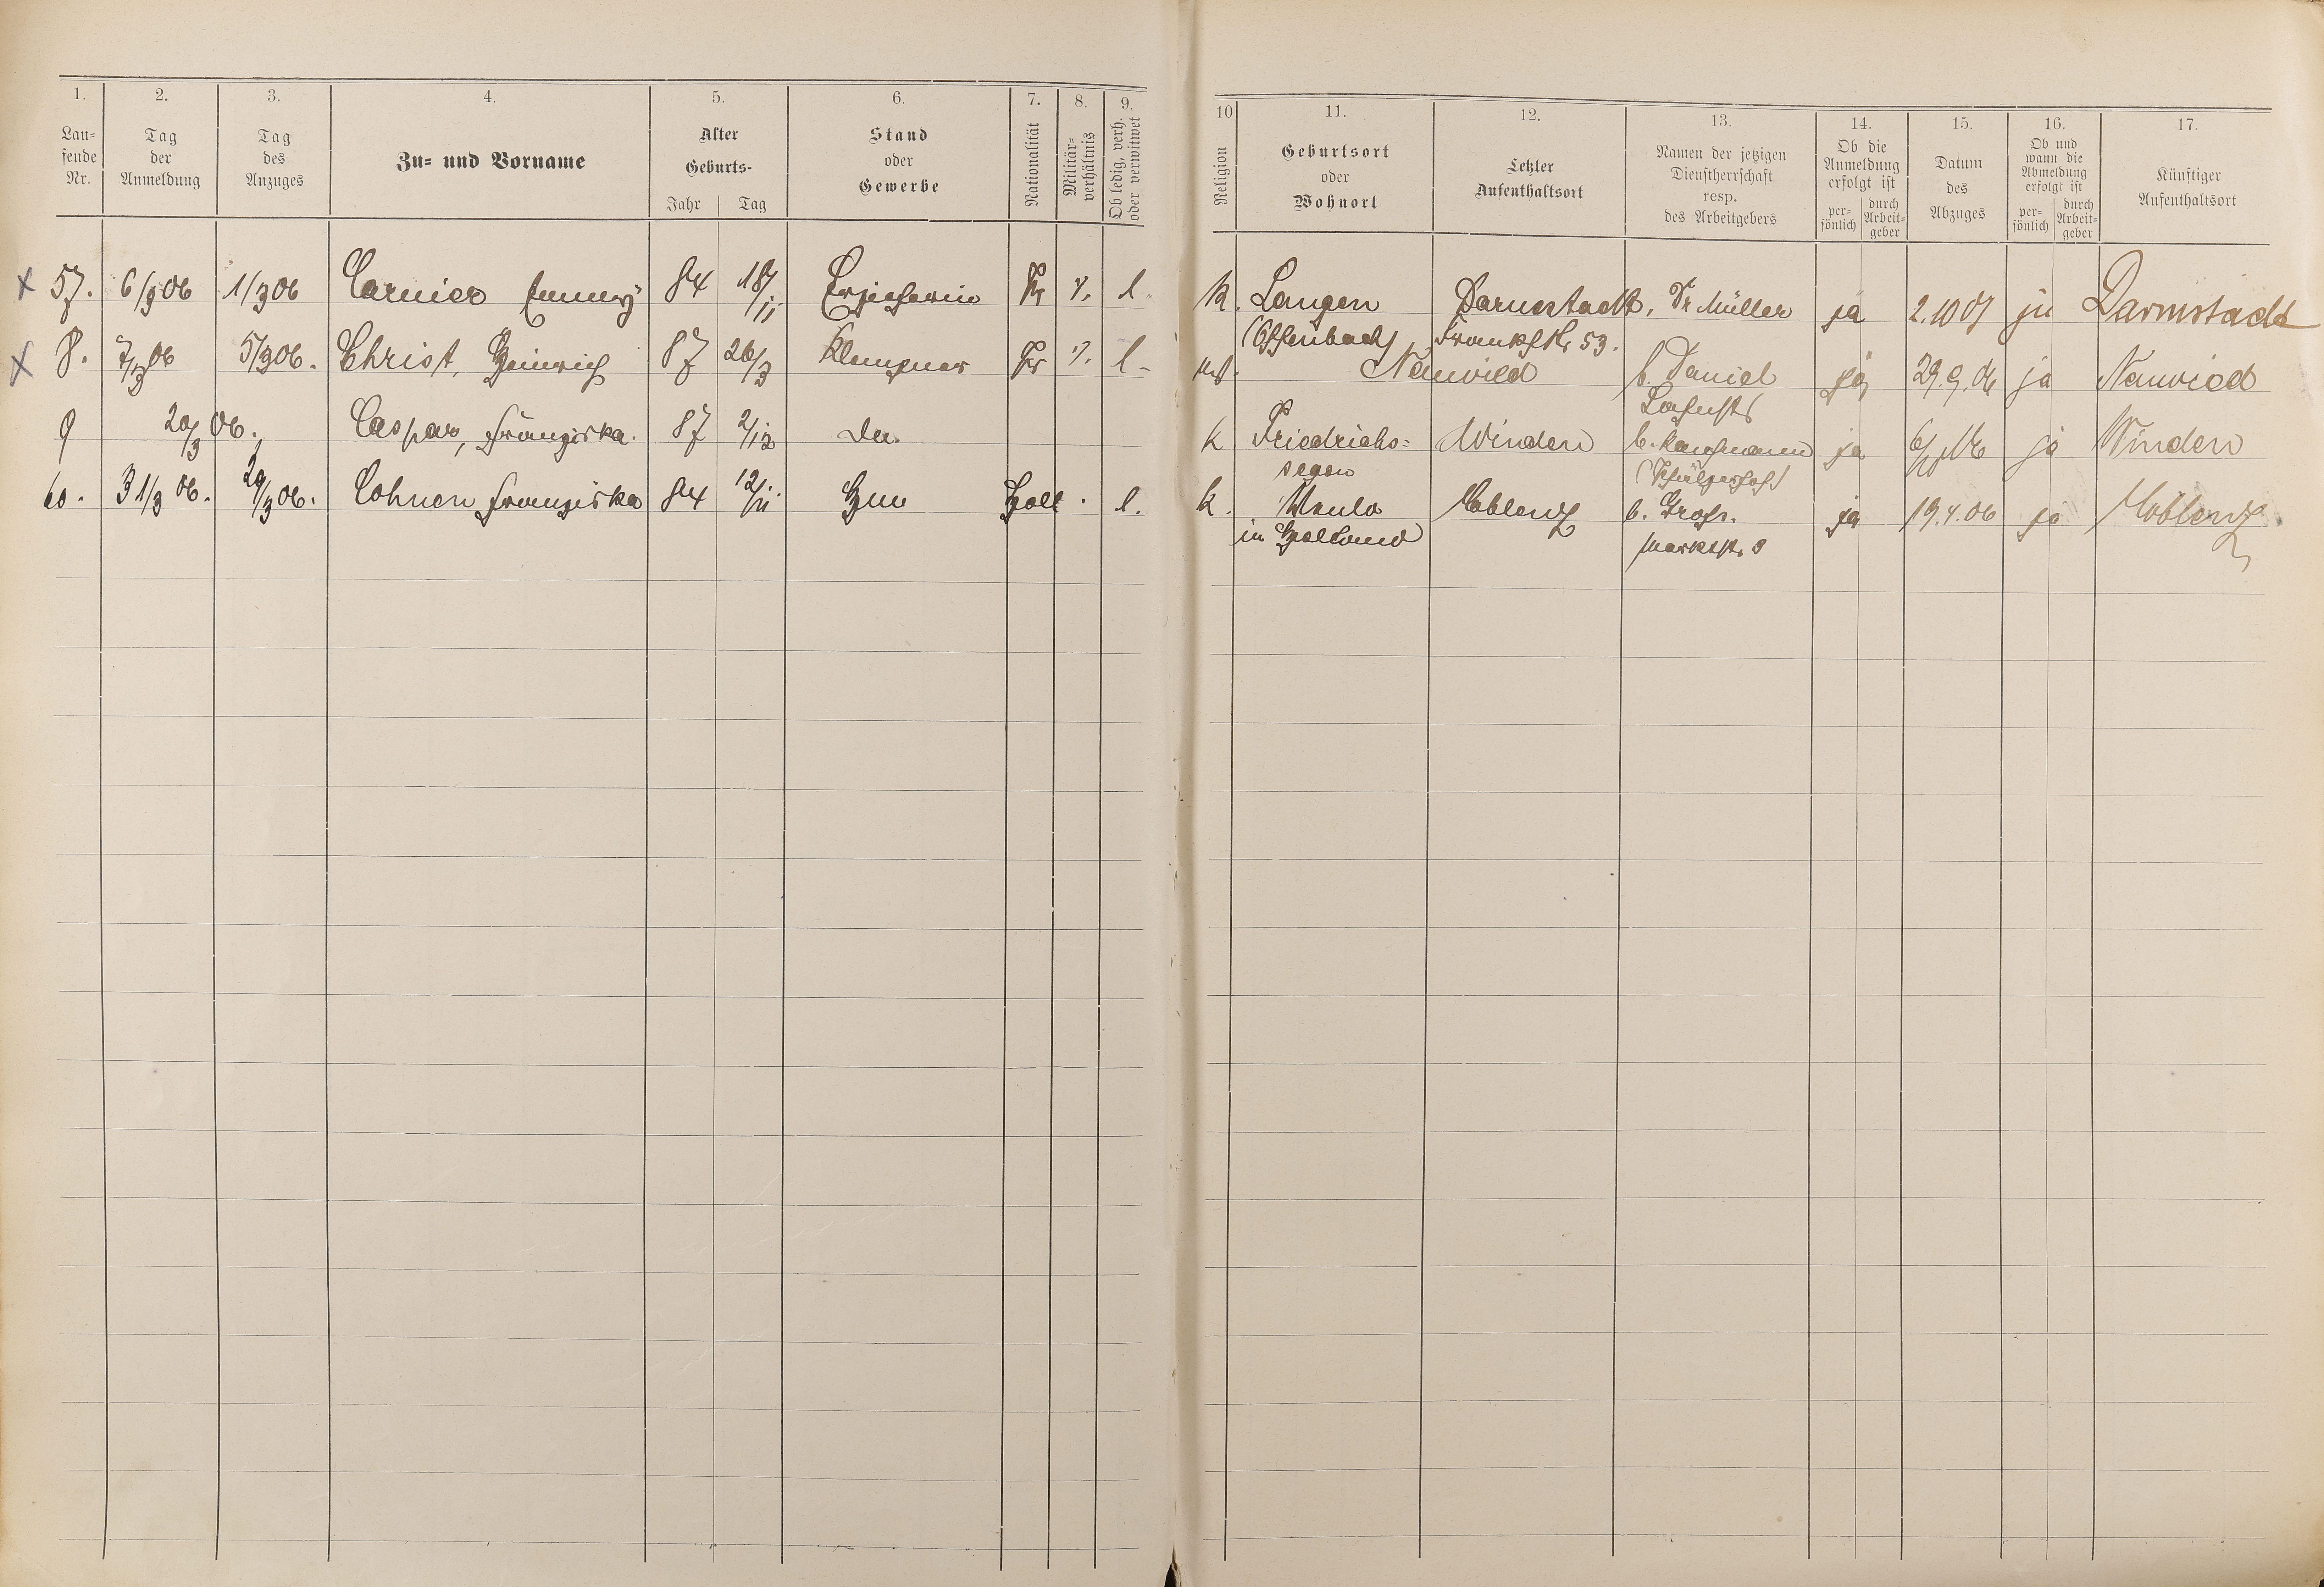 1. 2. 3. 4. 5. 6. 7. 8. 9.
Lau=
fende
Nr.
Tag
der
Anmeldung
Tag
des
Anzuges
Zu= und Vorname
Alter
Geburts-
Jahr Tag
Stand
oder
Gewerbe
Nationalität
Militär=
verhältnis
Ob ledig, verh.
oder verwitwet
57. 6/3 06 1/3 06 Carnier Emmy 84 18/11 Erzieherin Pr l.
8. 7/3 06 5/3 06. Christ, Heinrich 87 26/3 Klempner Pr l.
9 20/3 06. Caspar, Franziska. 87 2/12
60. 31/3 06. 29/3 06. Cohnen Franziska 84 12/11 Holl. l.
10 11. 12. 13. 14. 15. 16. 17.
Religion
Geburtsort
oder
Wohnort
Letzter
Aufenthaltsort
Namen der jetzigen
Dienstherrschaft
resp.
des Arbeitgebers
Ob die
Anmeldung
erfolgt ist
per=
sönlich
durch
Arbeit=
geber
Datum
des
Abzuges
Ob und
wann die
Abmeldung
erfolgt ist
per=
sönlich
durch
Arbeit=
geber
Künftiger
Aufenthaltsort
k. Langen Darmstadt, Dr Müller ja 2.10 07 ja Darmstadt
(Offenbach) Frankfstr 53.
Neuwied b. Daniel ja 29.9.06 ja Neuwied
Lahnstr
k Friedrichs= Winden b. Kaufmann ja ja Winden
segen
k. Coblenz b. Groß. ja 19.4.06 ja Coblenz
in Holland Marktstr. 9